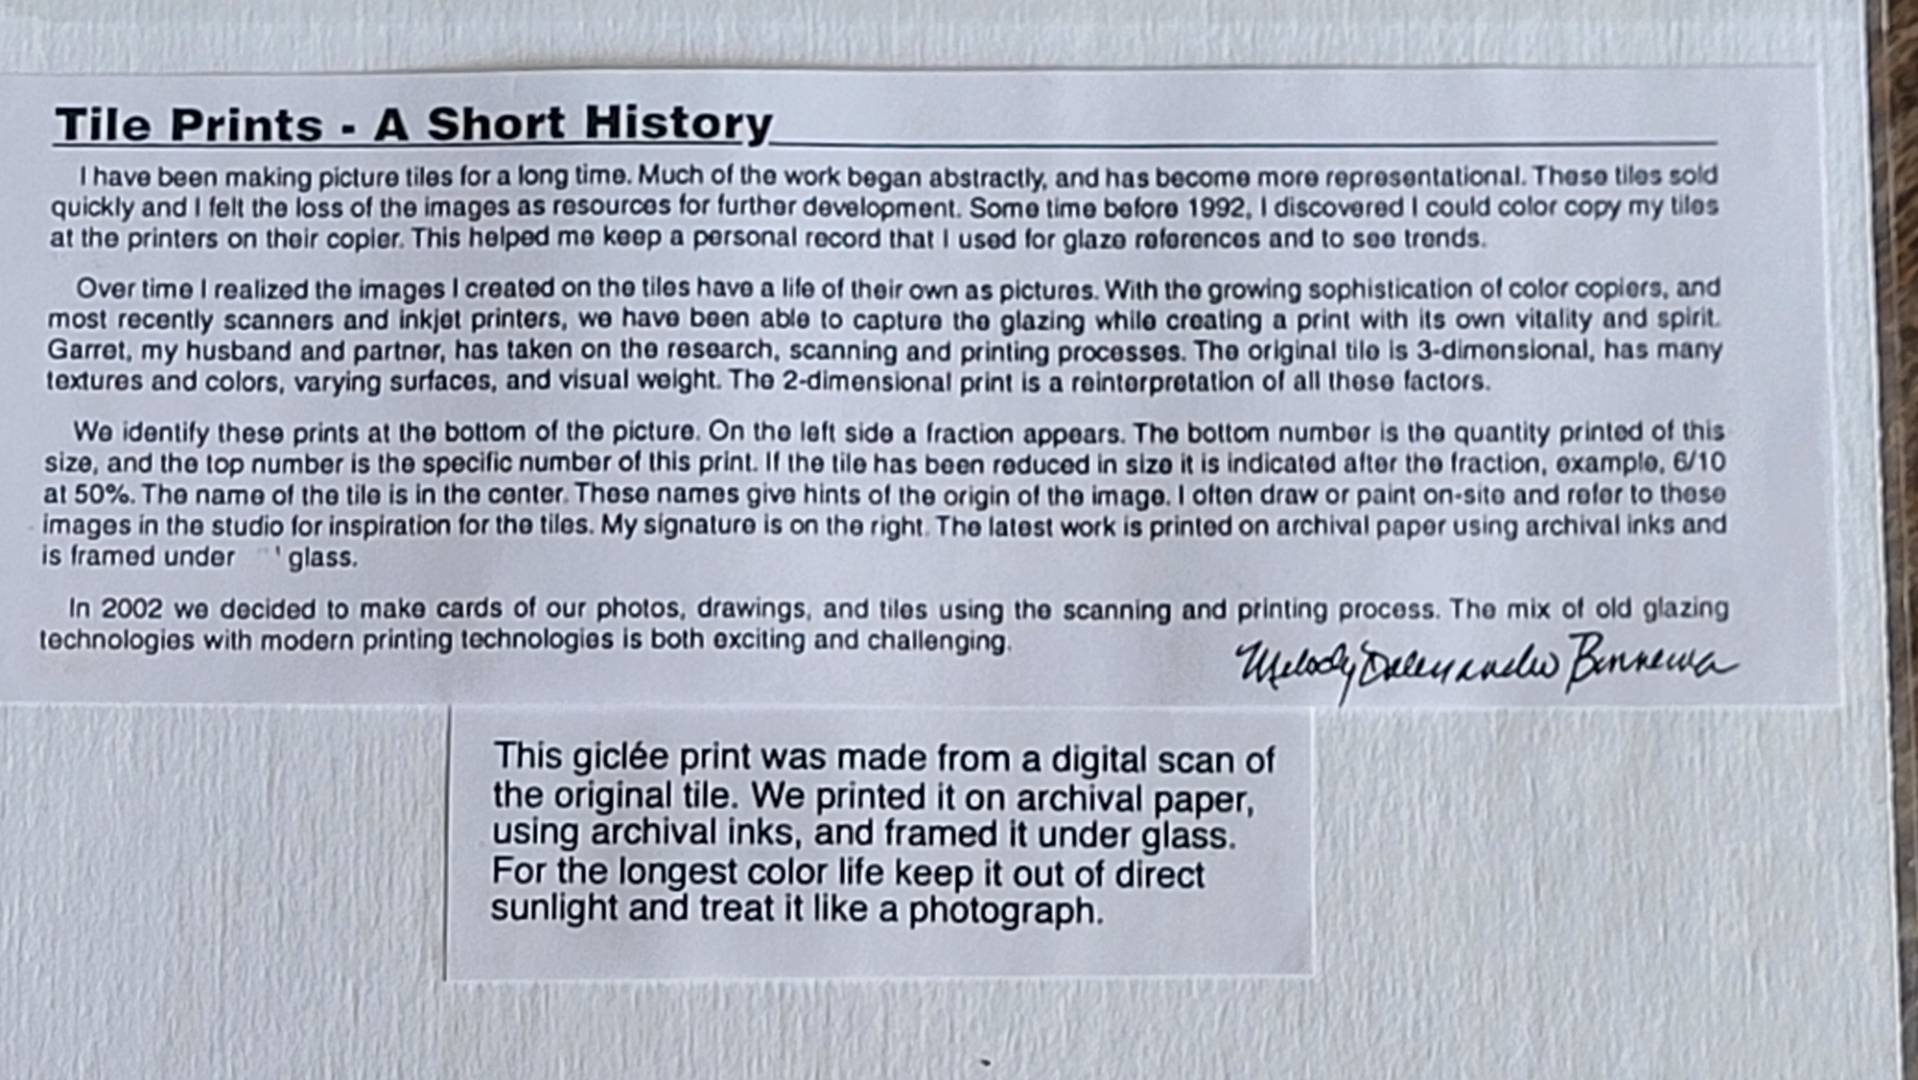 Tile Prints - A Short History
I have been making picture tiles for a long time. Much of the work began abstractly, and has become more representational. These tiles sold
quickly and I felt the loss of the images as resources for further development. Some time before 1992, I discovered I could color copy my tiles
at the printers on their copier. This helped me keep a personal record that I used for glaze references and to see trends.
Over time I realized the images I created on the tiles have a life of their own as pictures. With the growing sophistication of color copiers, and
most recently scanners and inkjet printers, we have been able to capture the glazing while creating a print with its own vitality and spirit.
Garret, my husband and partner, has taken on the research, scanning and printing processes. The original tile is 3-dimensional, has many
textures and colors, varying surfaces, and visual weight. The 2-dimensional print is a reinterpretation of all these factors.
We identify these prints at the bottom of the picture. On the left side a fraction appears. The bottom number is the quantity printed of this
size, and the top number is the specific number of this print. If the tile has been reduced in size it is indicated after the fraction, example, 6/10
at 50%. The name of the tile is in the center. These names give hints of the origin of the image. I often draw or paint on-site and refer to these
images in the studio for inspiration for the tiles. My signature is on the right. The latest work is printed on archival paper using archival inks and
is framed under glass.
In 2002 we decided to make cards of our photos, drawings, and tiles using the scanning and printing process. The mix of old glazing
technologies with modern printing technologies is both exciting and challenging.
Melody
This giclée print was made from a digital scan of
the original tile. We printed it on archival paper,
using archival inks, and framed it under glass.
For the longest color life keep it out of direct
sunlight and treat it like a photograph.